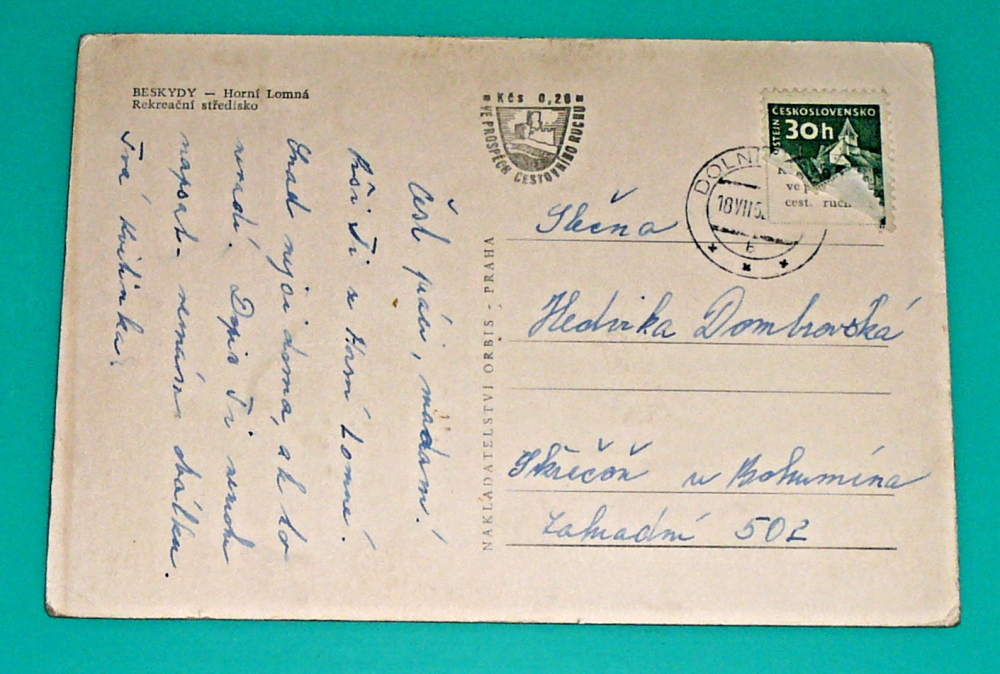 BESKYDY — Horní Lomná
Rekreační středisko
Kčs 0,20
VE PROSPĚCH CESTOVNÍHO RUCHU
ČESKOSLOVENSKO
30h
DOLNÍ
18 VII
b
ve
cest. ruch
NAKLADATELSTVÍ ORBIS - PRAHA
Čest práci, madam!
Píši Ti z Horní Lomné!
Snad nejsi doma, ale to
nevadí. Dopis Ti nemohu
napsat - nemám obálku.
Tvá Květinka!
Slečna
Hedvika Dombrovská
Skřečoň u Bohumína
Zahradní 502